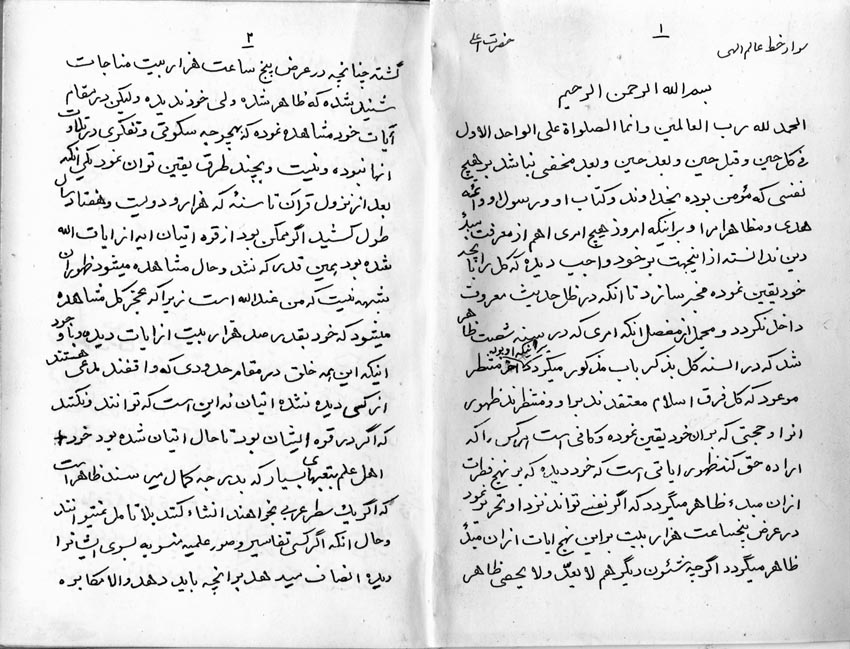 ۱
سواد خط عالم الهی
حضرت اعلی
بسم الله الرحمن الرحیم
الحمد لله رب العالمین وانما الصلواة علی الواحد الاول
فی کل حین و قبل حین و بعد حین و بعد مخفی نباشد بر هیچ
نفسی که مؤمن بوده بخداوند و کتاب او و رسول او و ائمه
هدی و مظاهر امر او بر اینکه امروز هیچ امری اهم از معرفت مبدء
دین ندانسته از اینجهت بر خود واجب دیده که کل را بآنچه
خود یقین نموده مخبر سازد تا انکه در ظل حدیث معروف
داخل نکردد و مجمل از مفصل انکه امری که در سنه شصت ظاهر
شد که در السنه کل بذکر باب مذکور میگردد اینکه او بوده منتظر
موعود که کل فرق اسلام معتقدند بر او و منتظرند ظهوری
انرا و حجتی که بر آن خود یقین نموده و کافی است هر کس را که
اراده حق کند ظهور ایاتی است که خود دیده که بر نهج فطرت
از ان مبدء ظاهر میگردد که اگر نفسی تواند نزد او تحریر نمود
در عرض پنجساعت هزار بیت بر این نهج ایات از ان مبدء
ظاهر میگردد اگر چه شئون دیگر هم لا یعد ولا یحصی ظاهر
۲
گشته چنانچه در عرض پنج ساعت هزار بیت مناجات
شنیده شده که ظاهر شده ولی خود ندیده ولیکن در مقام
آیات خود مشاهده نموده که بهیچوجه سکوتی و تفکری در تلاوت
انها نبوده و نیست و بچند طرق یقین توان نمود یکی انکه
بعد از نزول قران تا سنهٔ که هزار و دویست و هفتاد سال
طول کشید اگر ممکن بود از قوه اتیان ایه از ایات الله
شده بود بهمین قدر که نشد و حال مشاهده میشود ظهور ان
شبهه نیست که من عند الله است زیرا که عجز کل مشاهده
میشود که خود بقدر صد هزار بیت از ایات دیده و با وجود
اینکه این همه خلق در مقام حدودی که واقفند مدعی هستند
از کسی دیده نشده اتیان نه این است که توانند و نکنند
که اگر در قوه ایشان بود تا حال اتیان شده بود خود
اهل علم بتعبیرهای بسیار که بدرجه کمال میرسند ظاهر است
که اگر یک سطر عربی بخواهند انشاء کنند بلا تامل نمیتوانند
و حال انکه اگر کسی تفاسیر و صور علمیه منسوبه بسوی ایشانرا
دیده انصاف میدهد بر انچه باید دهد والا مکابره